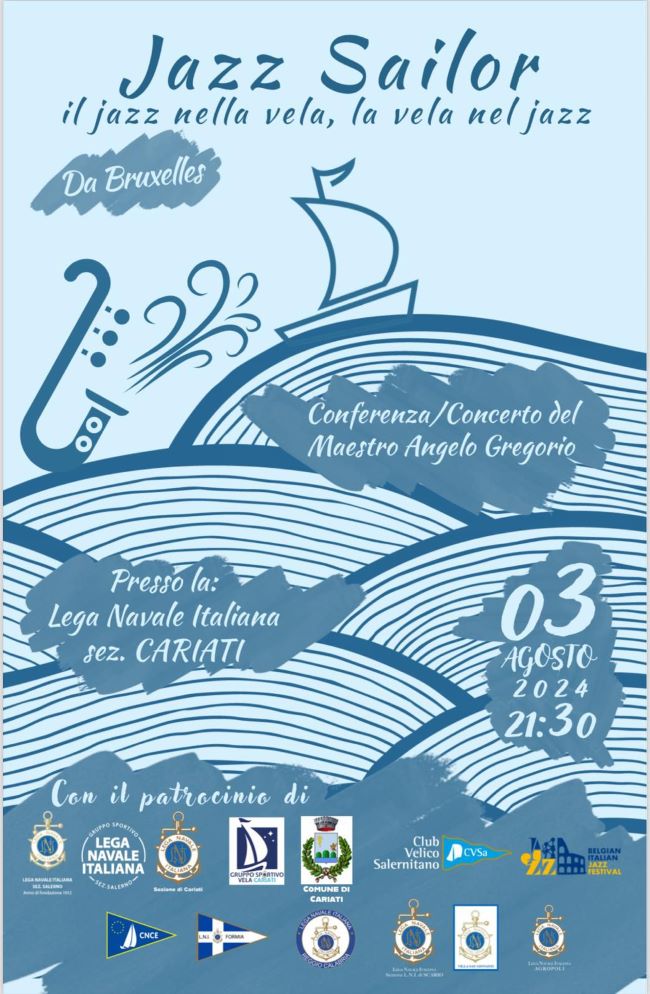 Jazz Sailor
il jazz nella vela, la vela nel jazz
Da Bruxelles
Conferenza/Concerto del
Maestro Angelo Gregorio
Presso la:
Lega Navale Italiana
sez. CARIATI
03
AGOSTO
2024
21:30
Con il patrocinio di
LEGA NAVALE ITALIANA
SEZ. SALERNO
Anno di fondazione
GRUPPO SPORTIVO
LEGA
NAVALE
ITALIANA
SEZ. SALERNO
LEGA NAVALE
ITALIANA
Sezione di Cariati
GRUPPO SPORTIVO
VELA CARIATI
COMUNE DI
CARIATI
Club
Velico
Salernitano
CVSa
BELGIAN
ITALIAN
JAZZ
FESTIVAL
CNCE
L.N.I. FORMIA
LEGA NAVALE ITALIANA
REGGIO CALABRIA
Lega Navale Italiana
Lega Navale Italiana
AGROPOLI